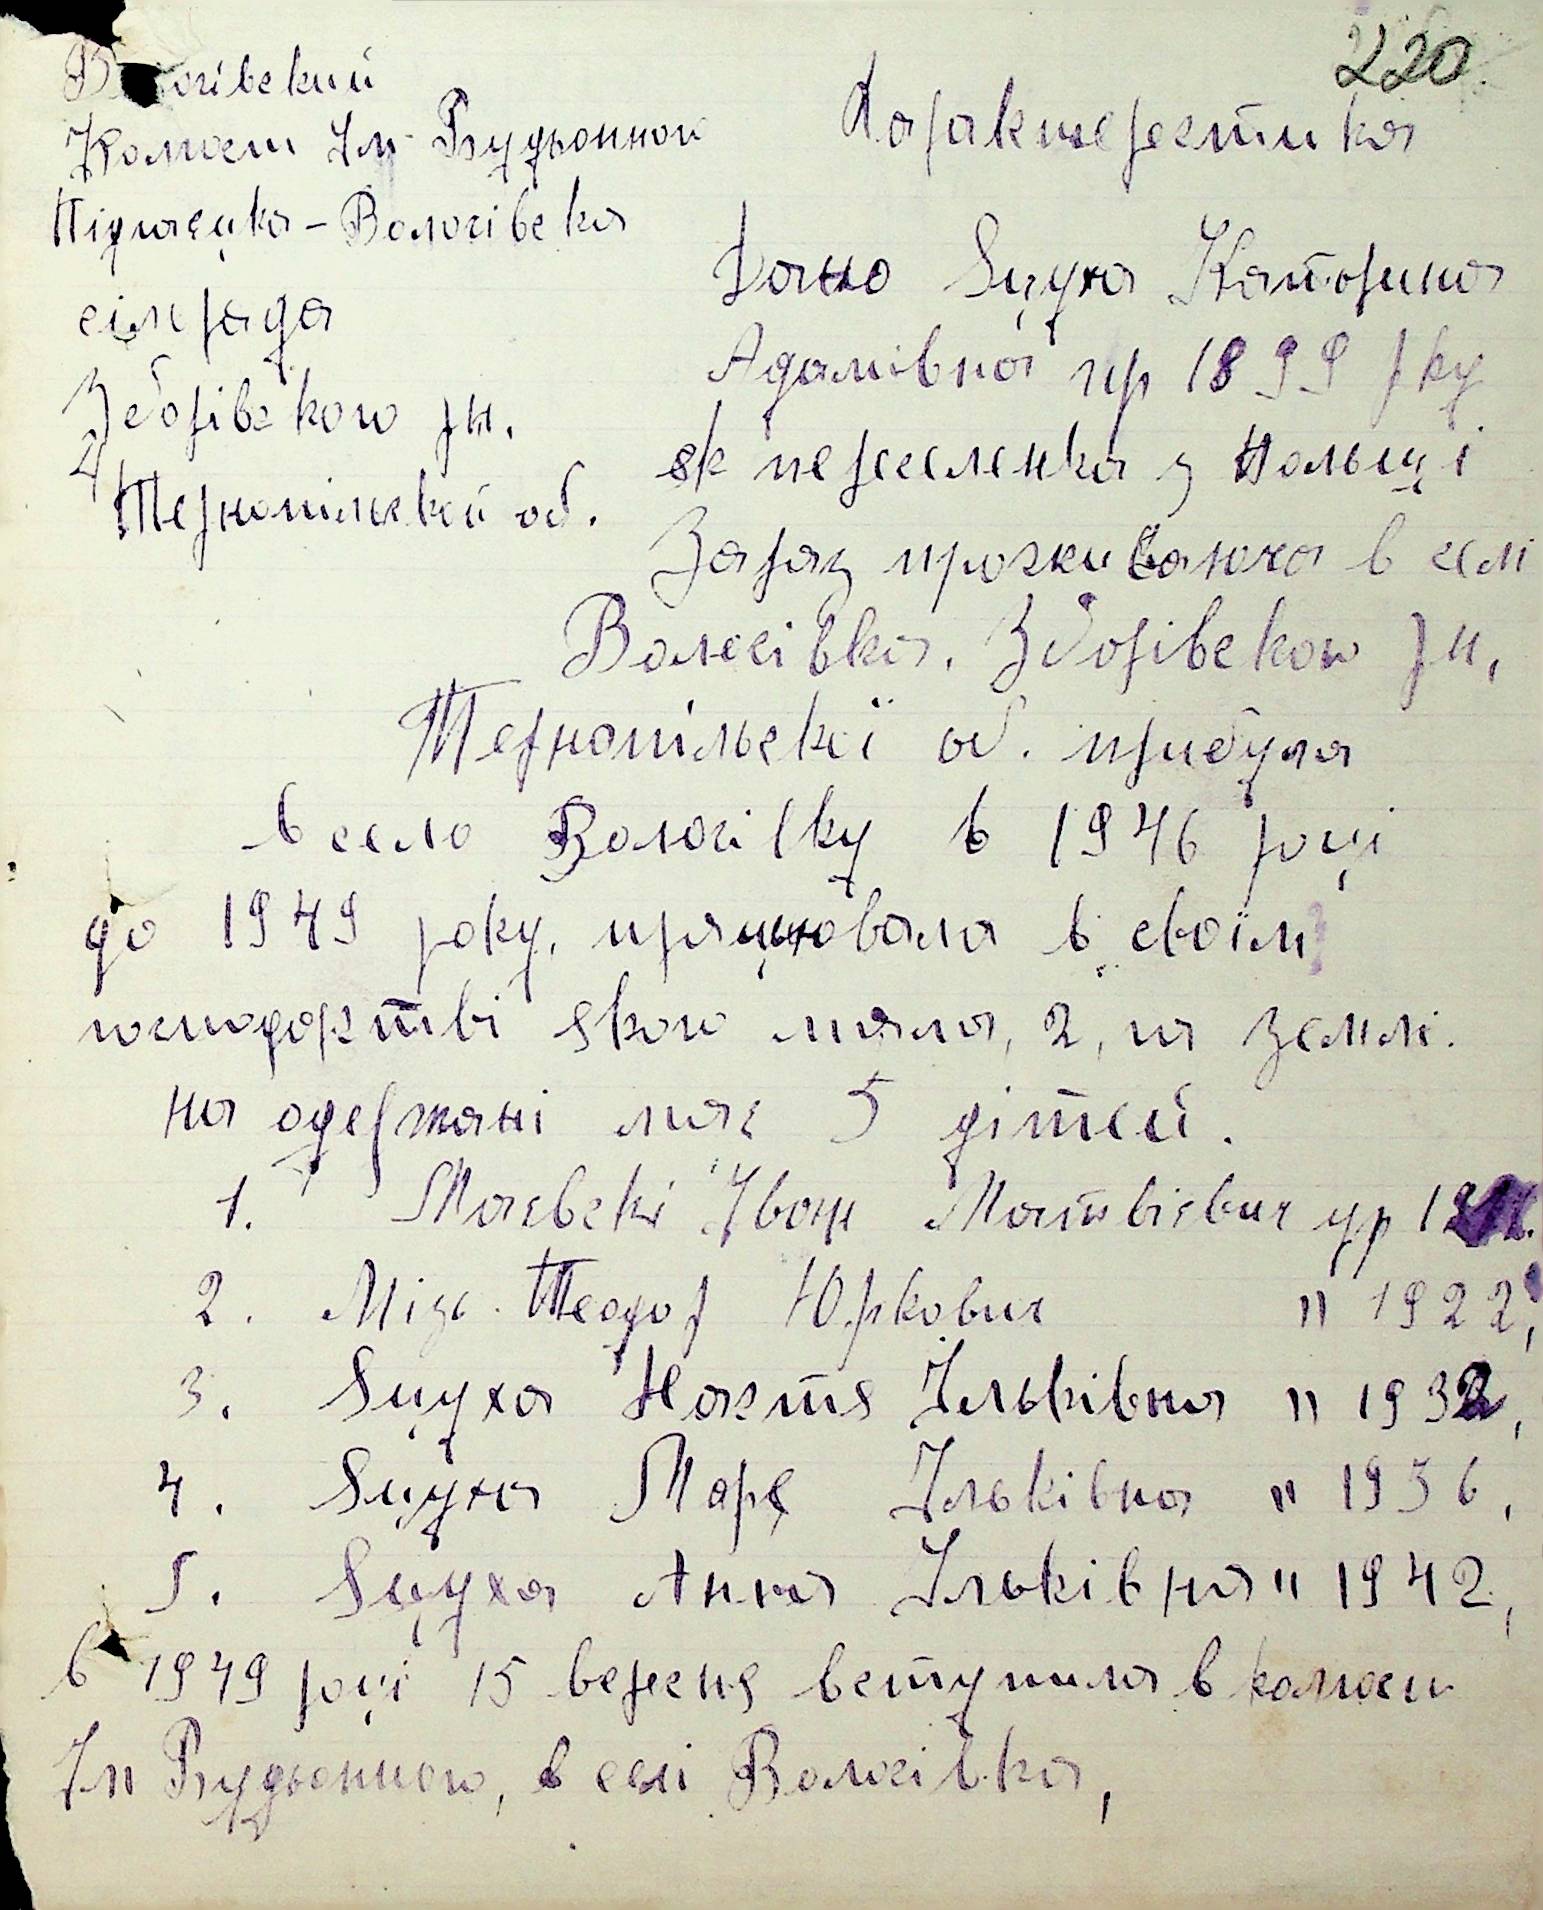 220
В логівский
Колгосп Ім Будьонного
Підгаєцка - Вологівска
сілрада
Зборівского рн.
Тернопільскої об.
Характерестика
Дано Яцуха Катерина
Адамівна нр 1899 рку
як переселенка з Польщі
Зараз проживаюча в селі
Вологівка. Зборівского рн,
Тернопільскої об. прибула
в село Вологівку в 1946 році
до 1949 року, працювала в своїм
господарстві якого мала, 2, га землі.
на одержані має 5 дітей.
1. Маєвскі Іван Матвієвич ур
2. Мізь. Теодор Юркович " 1922,
3. Яцуха Настя Ільківна " 1932,
4. Яцуха Маря Ільківна " 1936,
5. Яцуха Анна Ільківна " 1942,
в 1949 році 15 вересня вступила в колгосп
Ім Будьонного, в селі Вологівка,